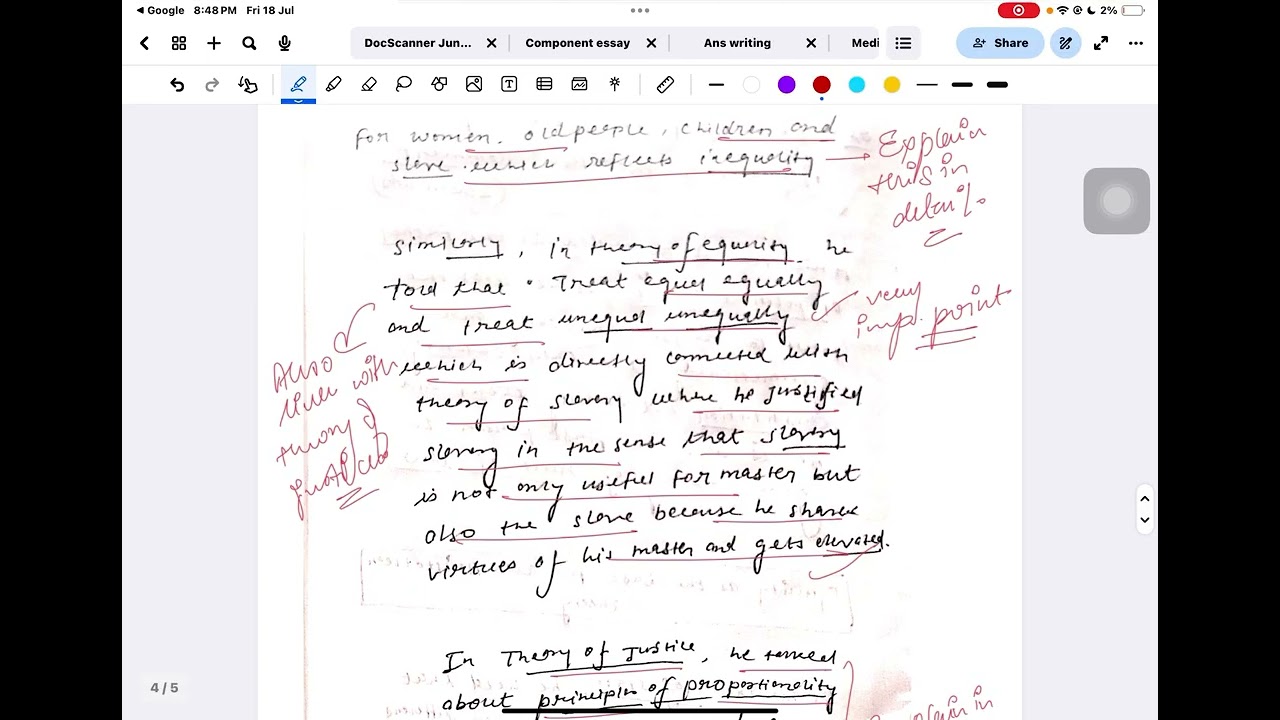 Google 8:48 PM Fri 18 Jul
2%
DocScanner Jun...
Component essay
Ans writing
Medi
Share
for women, old people, children and
slave which reflects inequality
Explain
this in
detail.
Similarly, in theory of equality he
told that "Treat equal equally
and treat unequal unequally
very
imp. point
Also
link with
theory of
justice
which is directly connected with
theory of slavery where he justified
slavery in the sense that slavery
is not only useful for master but
also the slave because he shares
virtues of his master and gets elevated.
In Theory of Justice, he talked
about principles of proportionality
in
4 / 5